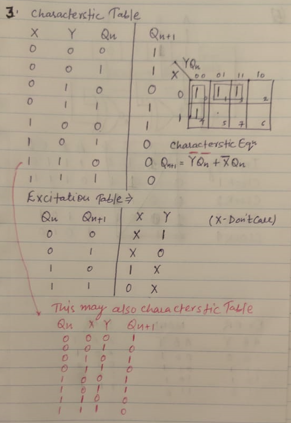 3. Characterstic Table
X Y Qn Qn+1
0 0 0 1
0 0 1 1
0 1 0 0
0 1 1 1
1 0 0 1
1 0 1 0
1 1 0 0
1 1 1 0
YQn
X 00 01 11 10
0 1 1 1 2
1 1 5 7 6
Characterstic Eqn
Qn+1 = Y̅Q̅n + X̅Qn
Excitation Table ⇒
Qn Qn+1 X Y (X-Don't Care)
0 0 X 1
0 1 X 0
1 0 1 X
1 1 0 X
This may also characterstic Table
Qn X Y Qn+1
0 0 0 1
0 0 1 0
0 1 0 1
0 1 1 0
1 0 0 1
1 0 1 1
1 1 0 0
1 1 1 0